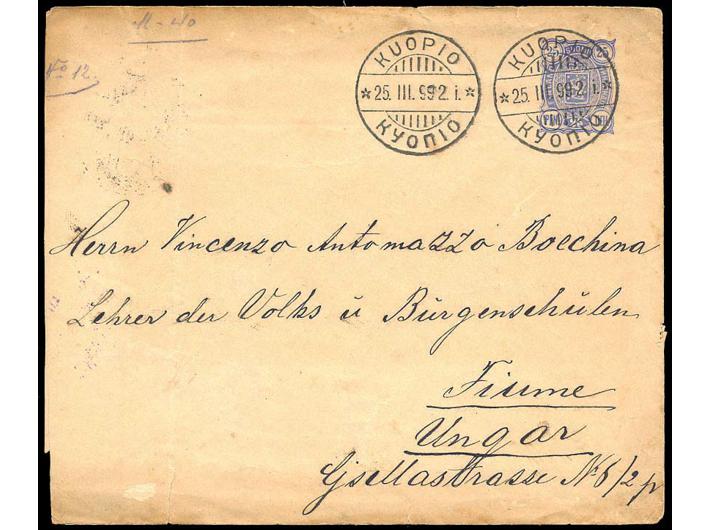 M-wo
No 12.
KUOPIO
* 25. III. 99 2. i. *
КУОПІО
KUOPIO
* 25. III. 99 2. i. *
КУОПІО
25
25
Herrn Vincenzo Antomazzo Boechina
Lehrer der Volks ü Bürgenschülen
Fiume
Ungar
Gisellastrasse № 6/2 p